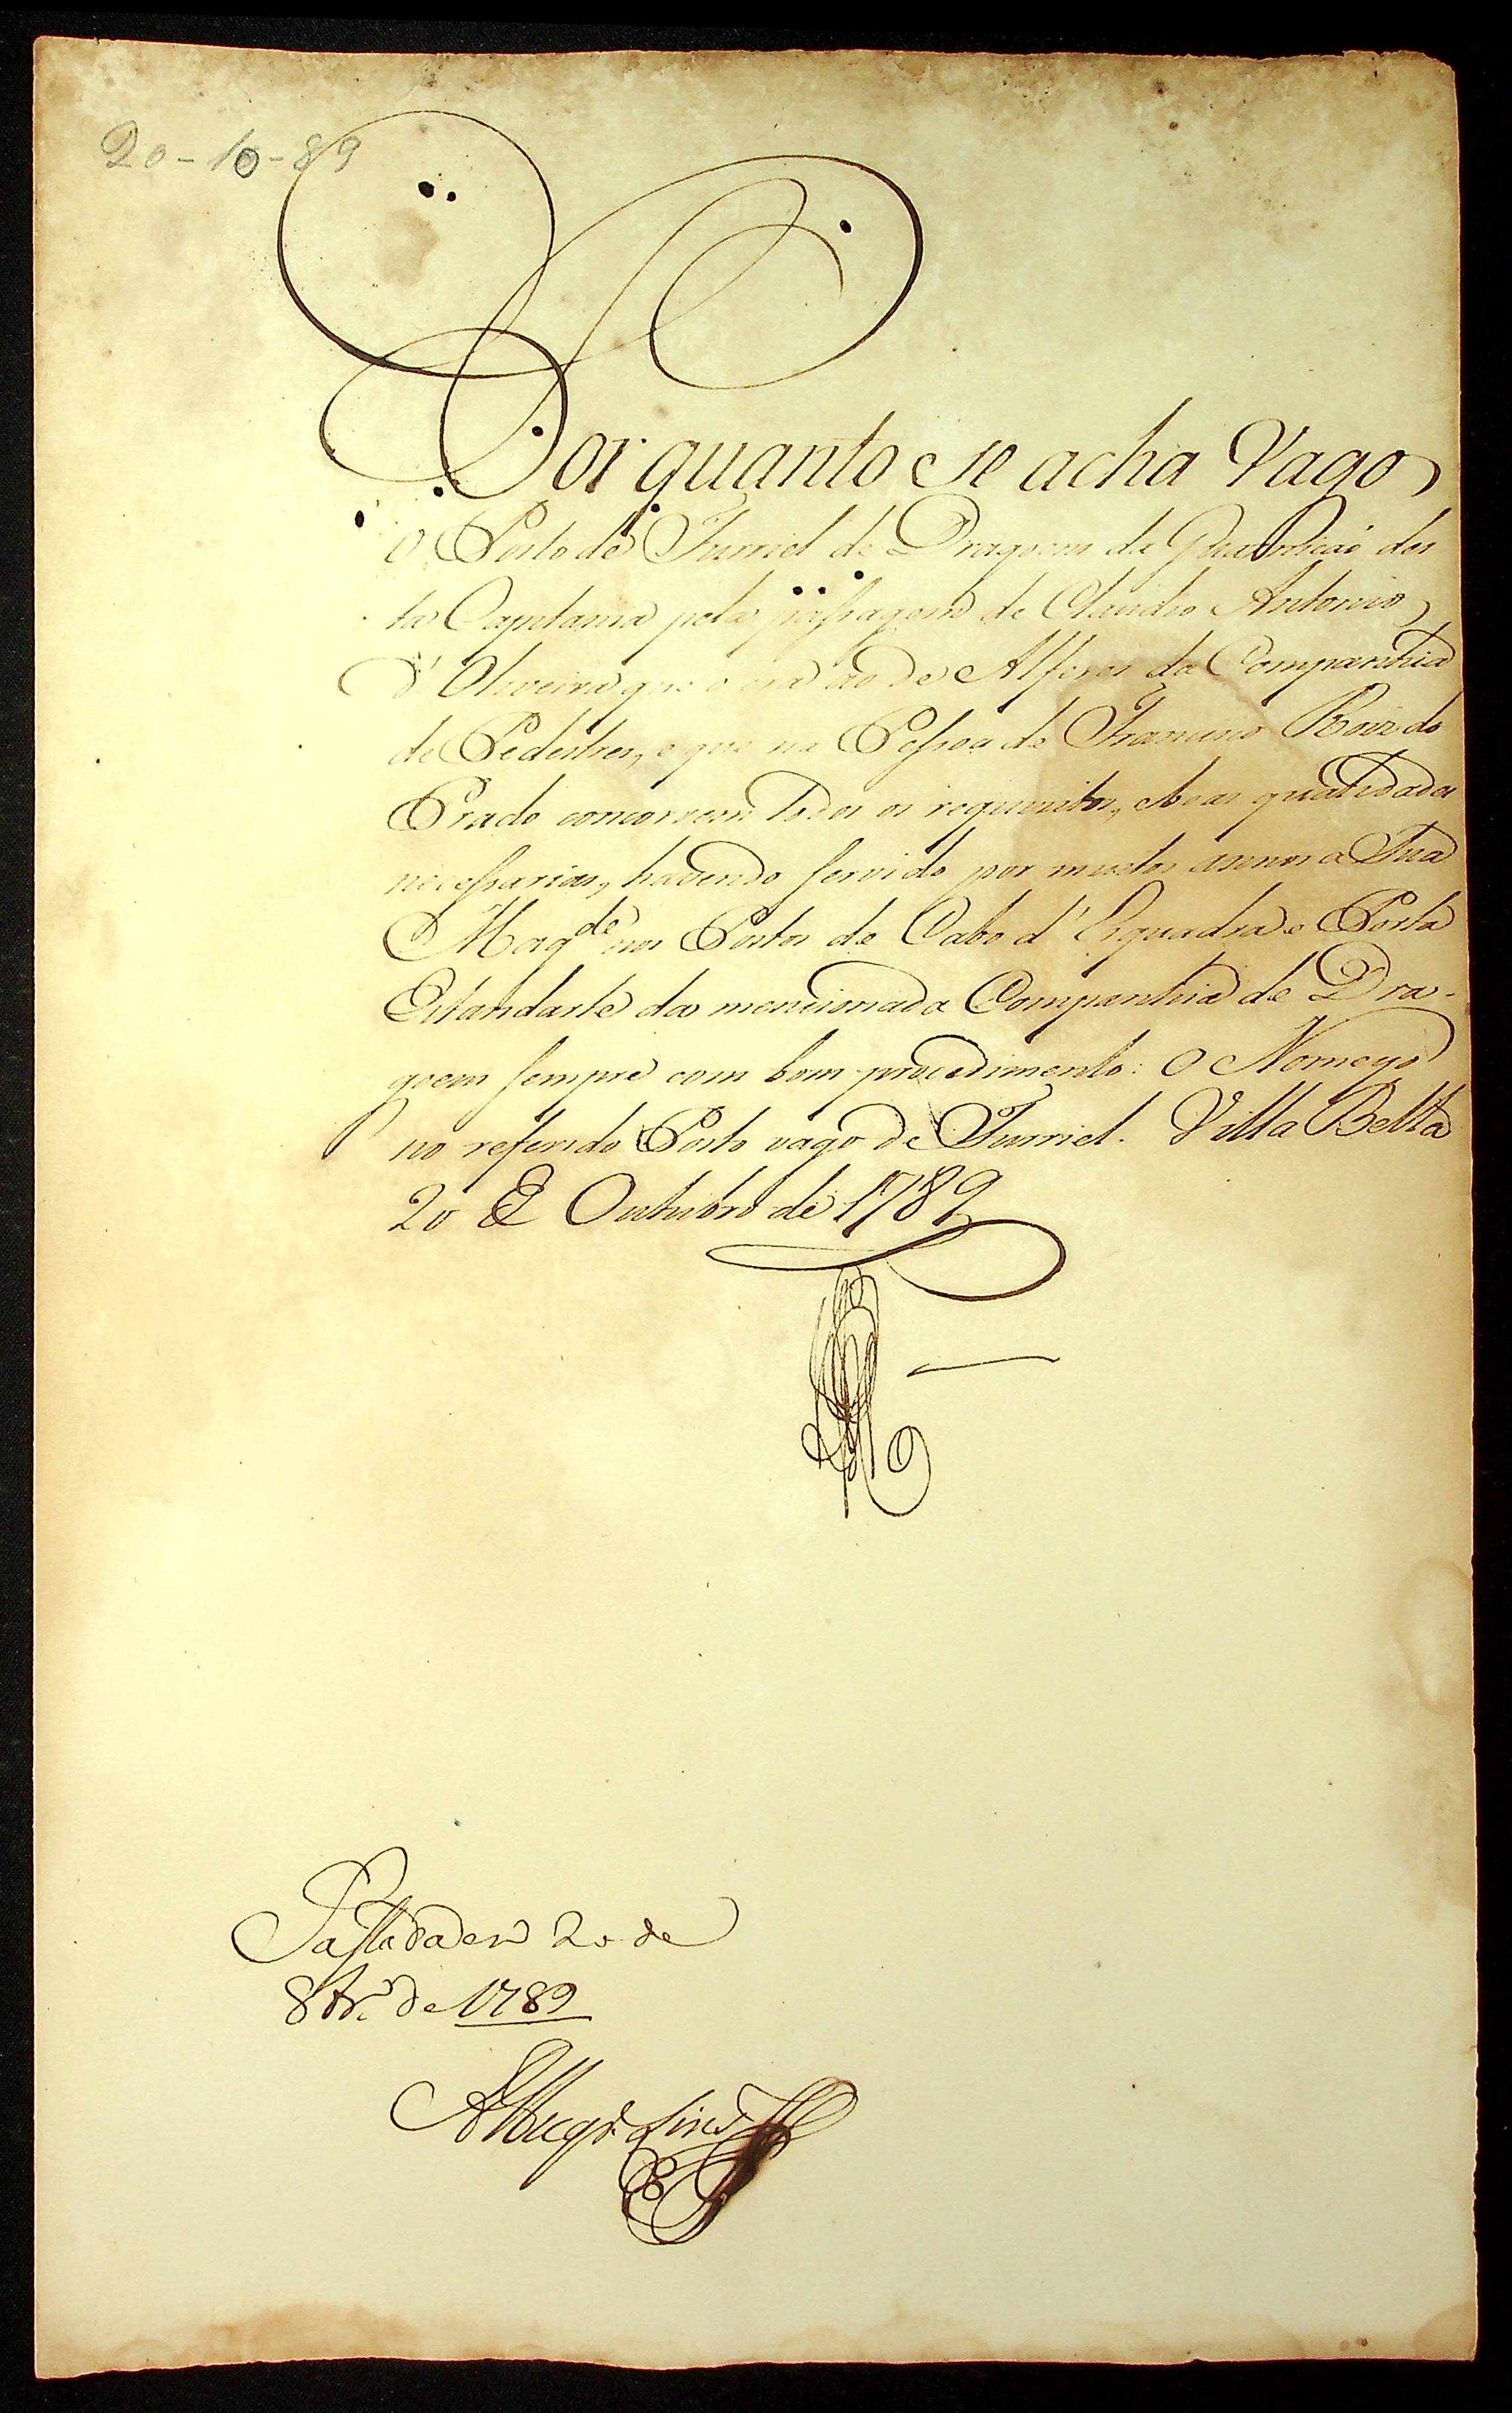 20-10-89
Por quanto se acha Vago
O Posto de Furriel de Dragoens da Guarnição des
ta Capitania pela passagem de Claudio Antonio
d'Oliveira que o era ao de Alferes da Companhia
de Pedestres, e que na Pessoa de Francisco Roiz do
Prado concorrem todos os requisitos, e boas qualidades
necessarias, havendo servido por muitos annos a Sua
Magde nos Postos de Cabo d'Esquadra e Porta
Estandarte da mencionada Companhia de Dra-
goens sempre com bom procedimento: O Nomeyo
no referido Posto vago de Furriel. Villa Bella
20 de Outubro de 1789
Passada em 20 de
8br.o de 1789